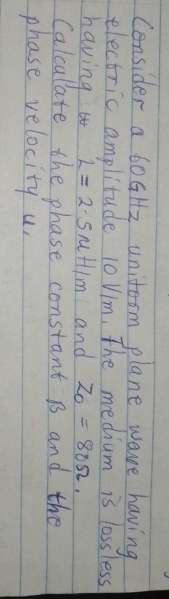 Consider a 60GHz uniform plane wave having
electric amplitude 10V/m. The medium is lossless
having L = 2.5 μH/m and Z₀ = 80Ω.
Calculate the phase constant β and the
phase velocity u.